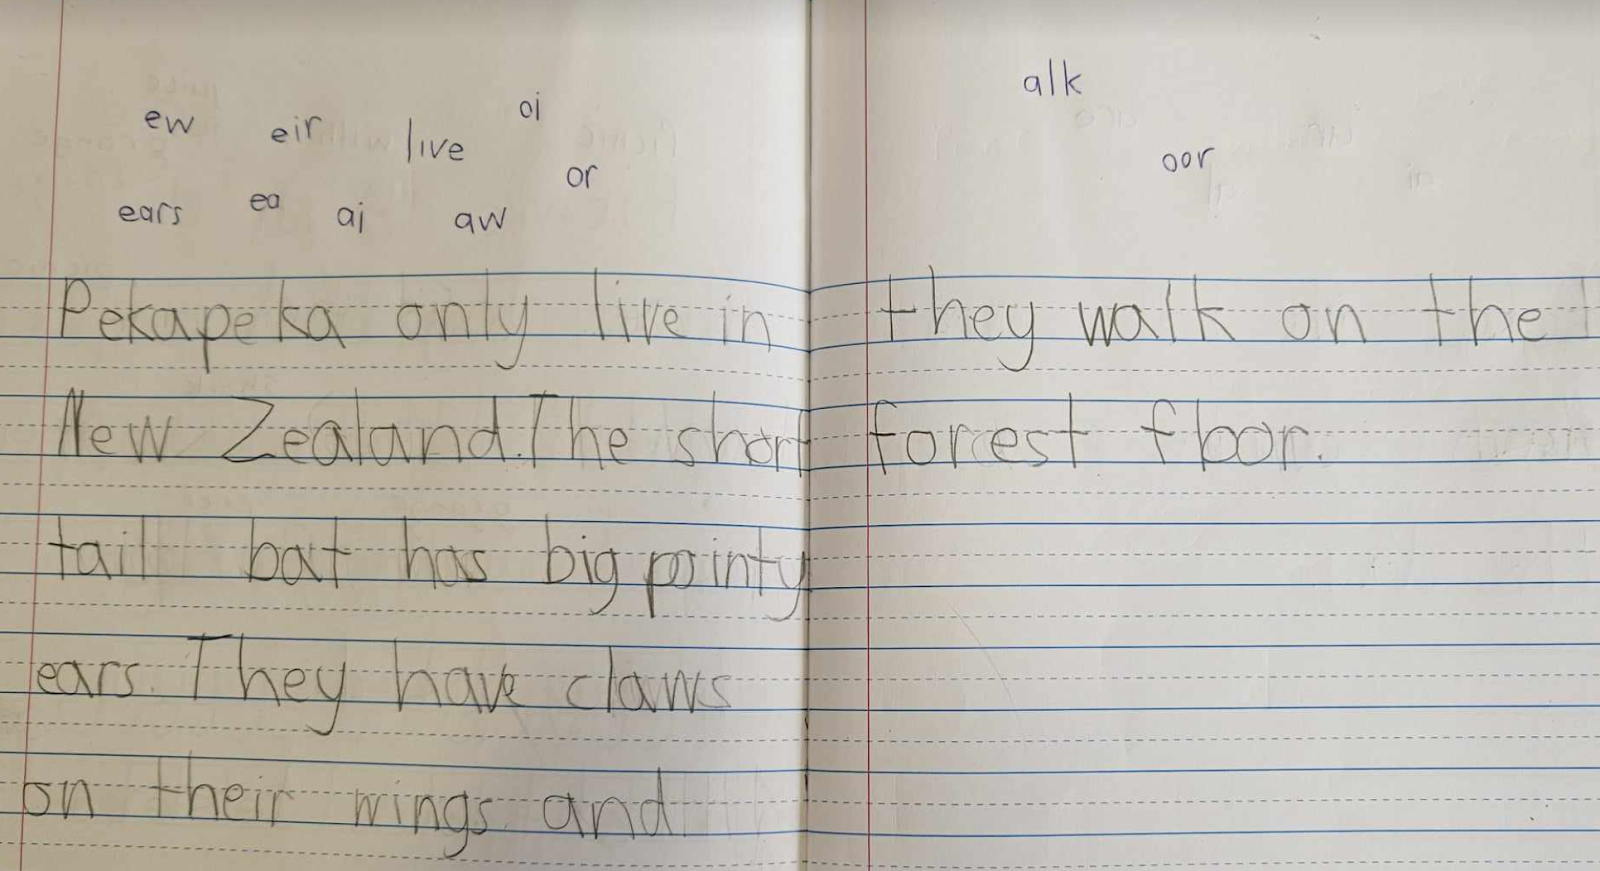 ew eir live oi
or
ears ea ai aw
Pekapeka only live in
New Zealand. The short
tail bat has big pointy
ears. They have claws
on their wings and
alk
oor
they walk on the
forest floor.